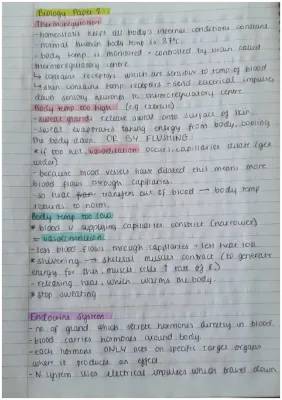 Biology Paper 2:
Thermoregulation
- homeostasis keeps all body's internal conditions constant
- normal human body temp is 37°C
- body temp is monitored + controlled by brain called
thermoregulatory centre
↳ contains receptors which are sensitive to temp of blood
↳ skin contains temp receptors → send electrical impulses
down sensory neurones to thermoregulatory centre
Body temp too high (e.g. exercise)
- sweat gland release sweat onto surface of skin
- sweat evaporates taking energy from body, cooling
the body down. OR BY FLUSHING.
* if too hot, vasodilation occurs, capillaries dilate (get
wider)
- because blood vessels have dilated this means more
blood flows through capillaries.
- so heat transfers out of blood → body temp
returns to norm.
Body temp too low
* blood v. supplying capillaries constrict (narrower)
= vasoconstriction
- less blood flows through capillaries → less heat loss
* shivering → skeletal muscles contract (to generate
energy for this, muscle cells ↑ rate of R)
- releasing heat which warms the body.
* stop sweating
Endocrine System
- no. of gland which secrete hormones directly in blood.
- blood carries hormones around body.
- each hormone ONLY acts on specific target organs
where it produces an effect.
- N. system uses electrical impulses which travel down